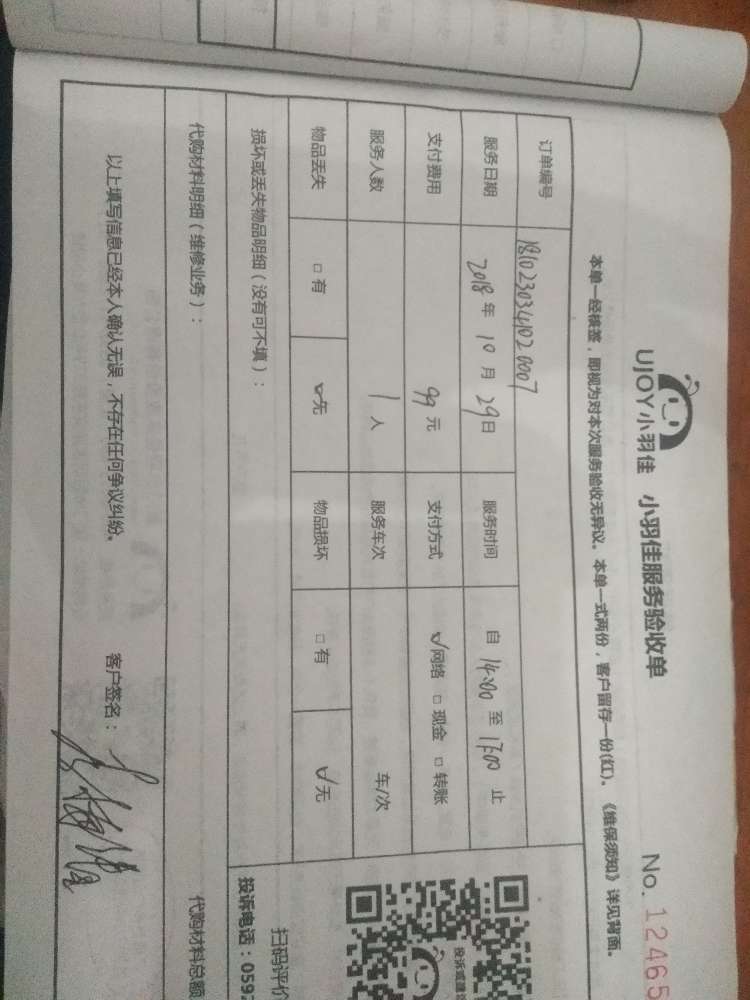 UJOY小羽佳 小羽佳服务验收单 No. 12465
本单一经核签，即视为对本次服务验收无异议。本单一式两份，客户留存一份(红)。《维保须知》详见背面。
订单编号 1810230341020007
服务日期 2018年10月29日 服务时间 自 14:00 至 17:00 止
支付费用 99元 支付方式 ☑网络 □现金 □转账
服务人数 1人 服务车次 车/次
物品丢失 □有 ☑无 物品损坏 □有 ☑无
损坏或丢失物品明细（没有可不填）：
扫码评价
投诉电话：059
代购材料明细（维修业务）：
代购材料总额
以上填写信息已经本人确认无误，不存在任何争议纠纷。 客户签名：